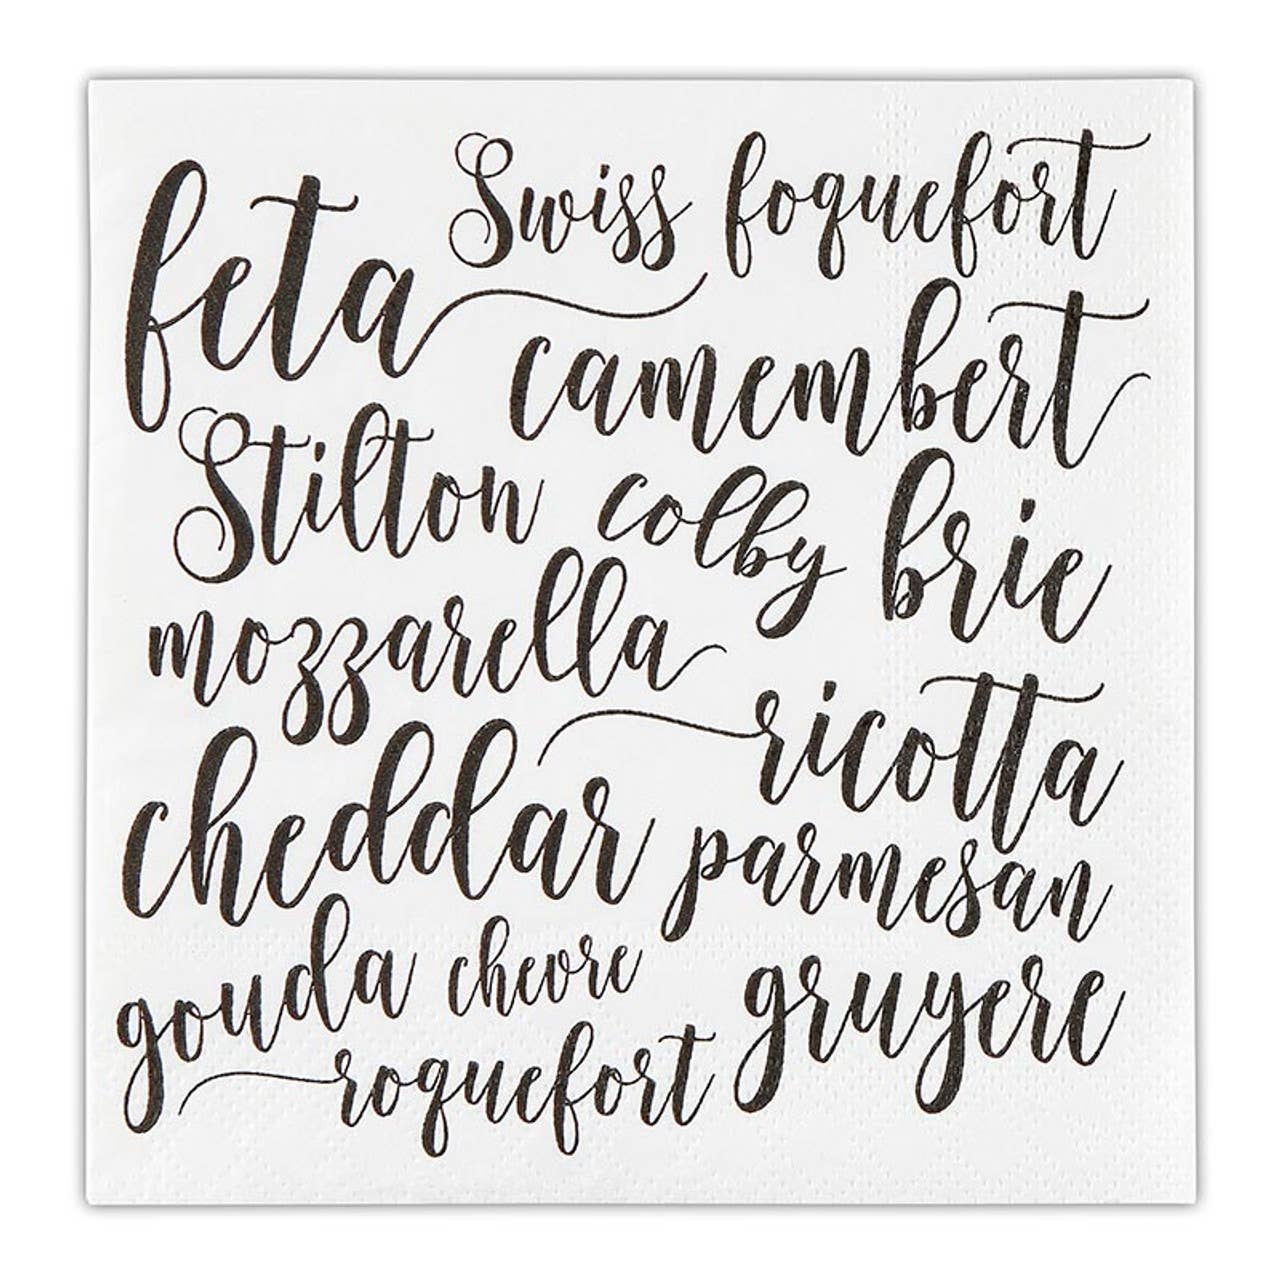 Swiss foquefort
feta
camembert
Stilton colby brie
mozzarella
ricotta
cheddar
parmesan
gouda chevre gruyere
roquefort